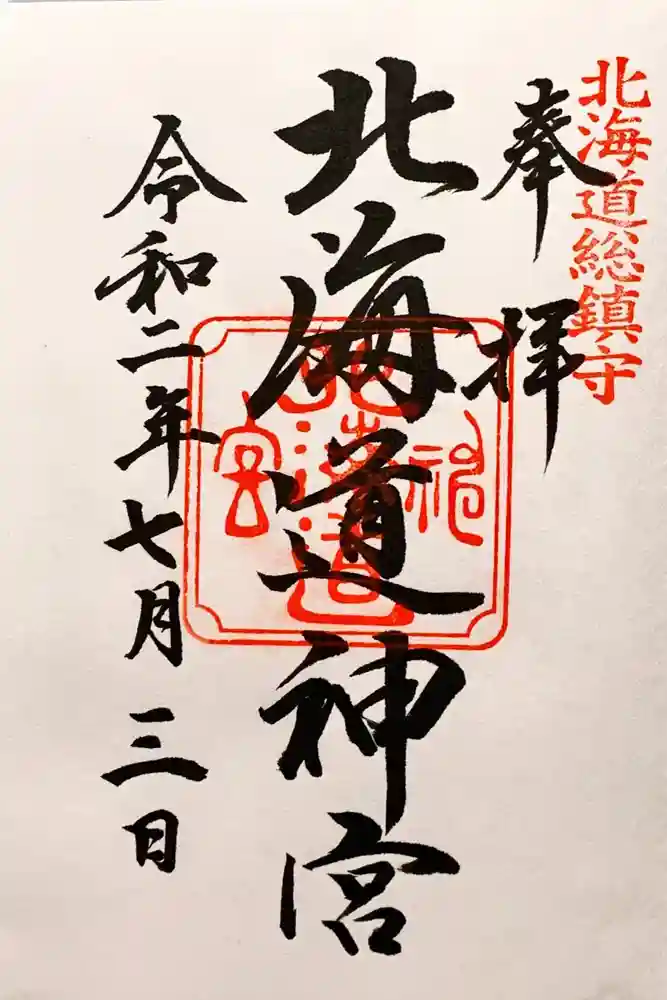 北海道総鎮守
奉拝
北海道神宮
令和二年七月三日